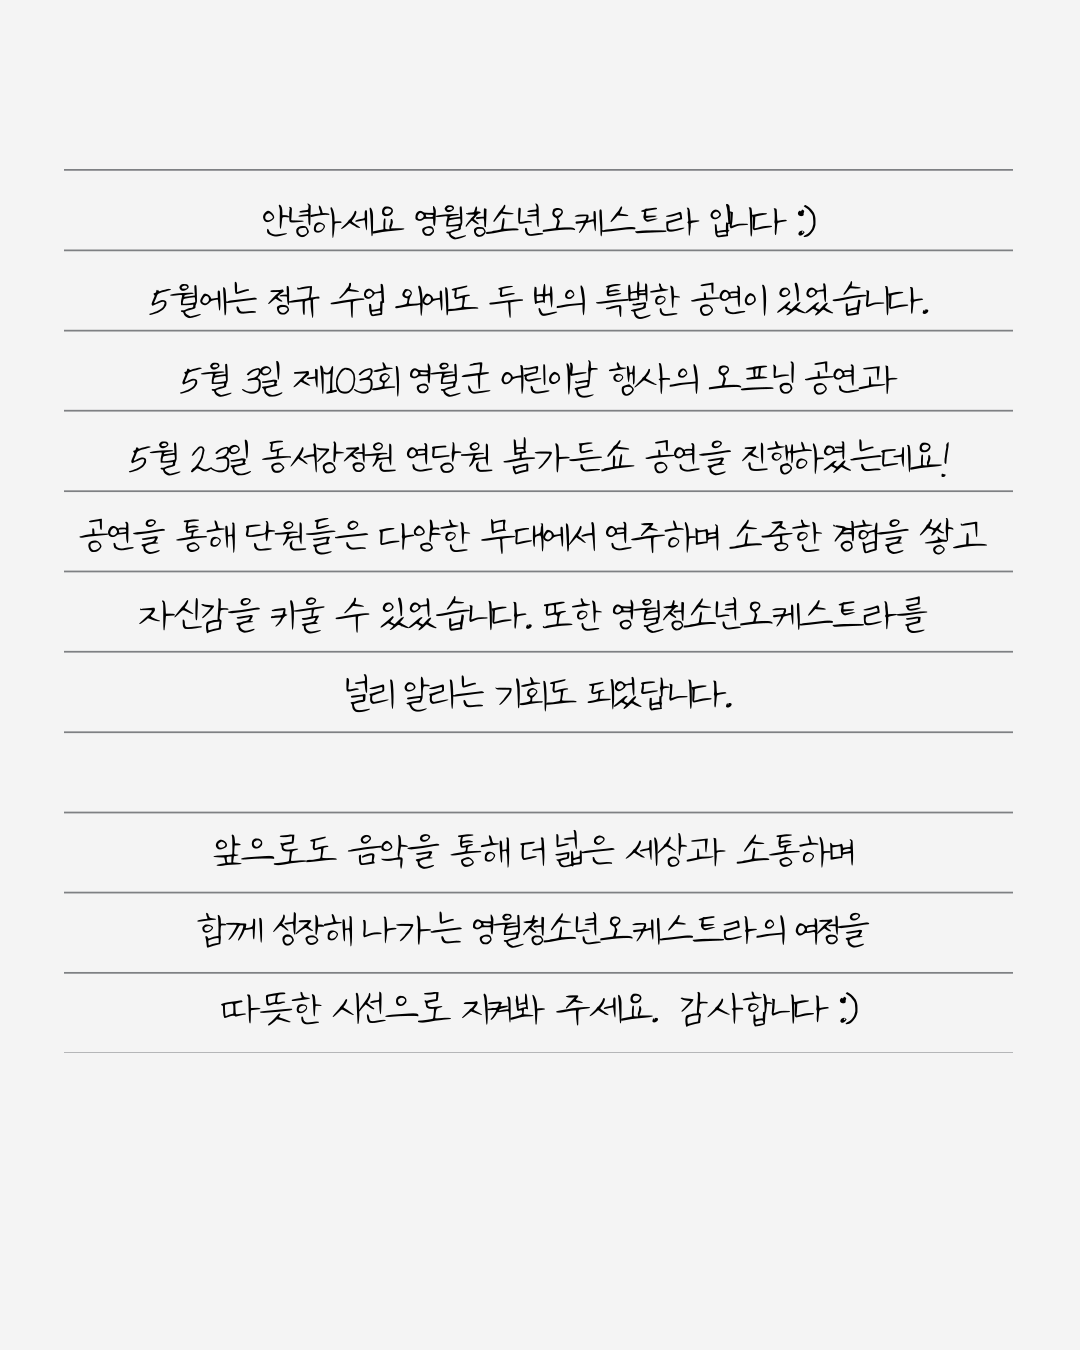 안녕하세요 영월청소년오케스트라 입니다 :)
5월에는 정규 수업 외에도 두 번의 특별한 공연이 있었습니다.
5월 3일 제103회 영월군 어린이날 행사의 오프닝 공연과
5월 23일 동서강정원 연당원 봄가든쇼 공연을 진행하였는데요!
공연을 통해 단원들은 다양한 무대에서 연주하며 소중한 경험을 쌓고
자신감을 키울 수 있었습니다. 또한 영월청소년오케스트라를
널리 알리는 기회도 되었답니다.
앞으로도 음악을 통해 더 넓은 세상과 소통하며
함께 성장해 나가는 영월청소년오케스트라의 여정을
따뜻한 시선으로 지켜봐 주세요. 감사합니다 :)